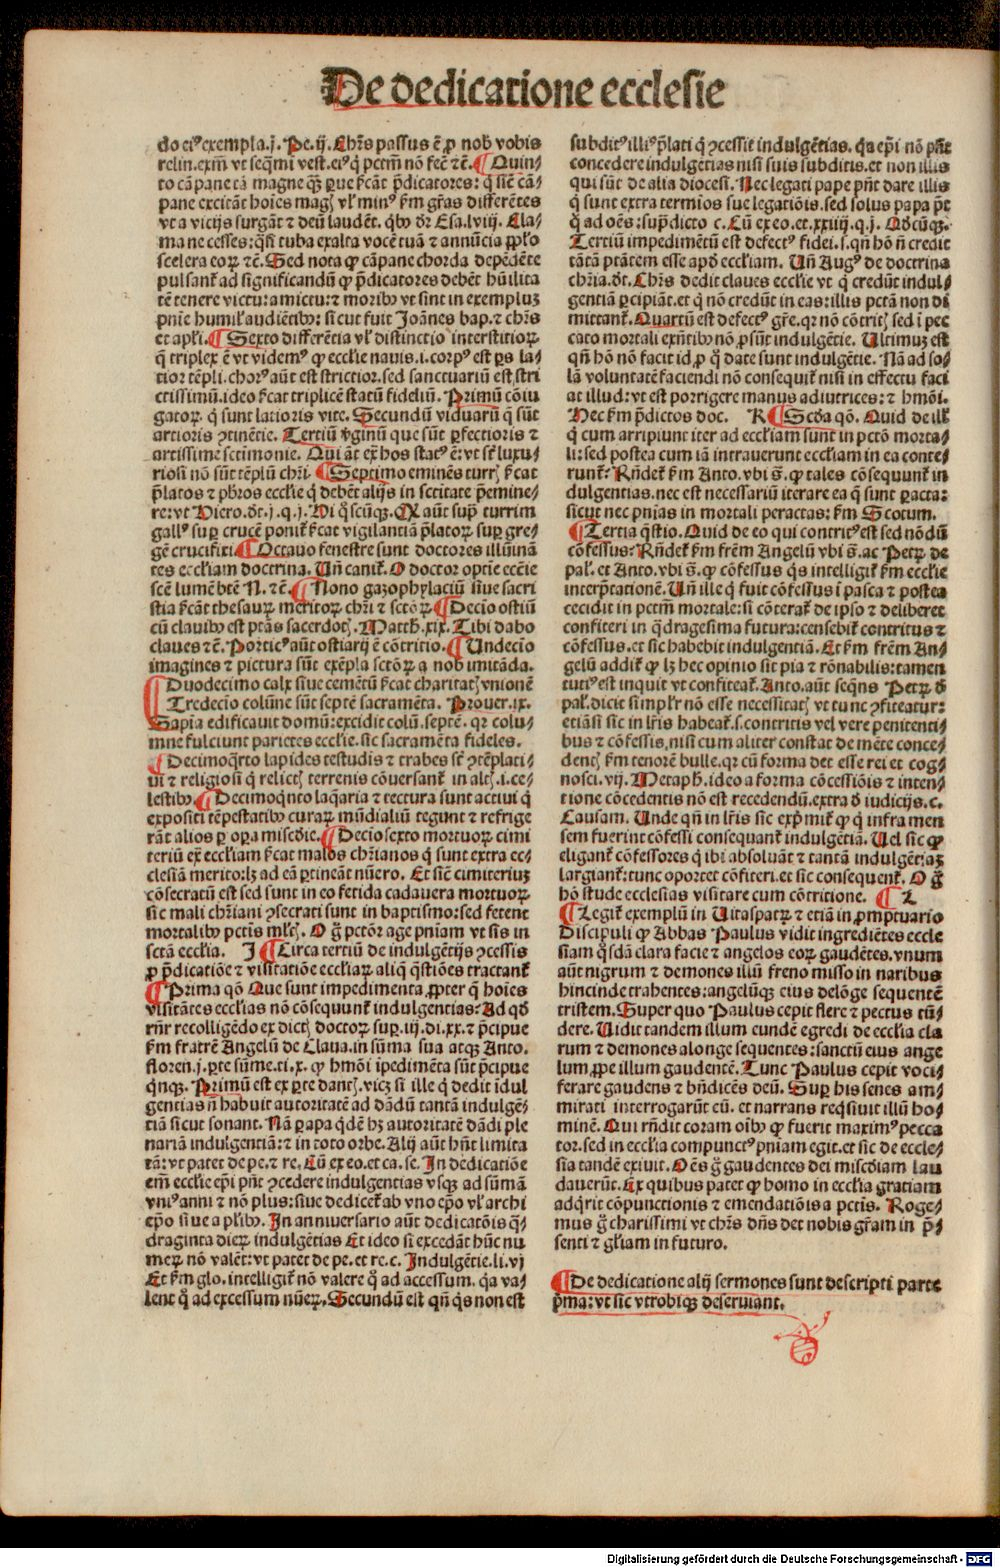 De dedicatione ecclesie
do eiꝰ exempla.j. Pe.ij. Chr̄s passus ē ꝓ nob̄ vobis
relin. exm̄ vt seq̄mi vest. eiꝰ q̇ pctm̄ nō fec̄ ⁊c̄. ¶ Quin⸗
to cāpane tā magne q̄ꝫ ꝑue s̄cāt p̄dicatores: q̇ sic̄ cā⸗
pane excitāt hoīes magꝭ vl̓ minꝰ s̄m gr̄as differētes
vt a vicijs surgāt ⁊ deū laudēt. qb̓ꝫ dr̄ Esa.lviij. Cla⸗
ma ne cesses: q̄si tuba exalta vocē tuā ⁊ annūcia pp̄lo
scelera eoꝝ ⁊c̄. Sed nota ꝙ cāpane chorda depēdēte
pulsant̄ ad significandū ꝙ p̄dicatores debēt hūilita
tē tenere victu: amictu: ⁊ moribꝫ vt sint in exempluꝫ
pnīe humil̓ audiētibꝫ: sicut fuit Joānes bap. ⁊ chr̄s
et apl̓i. ¶ Sexto differētia vl̓ distinctio interstitioꝝ
q̇ triplex ē vt videmꝰ ꝙ ecclīe nauis .i. corpꝰ est ꝑs la⸗
tior tēpli. chorꝰ aūt est strictior. sed sanctuariū est stri
ctissimū. ideo s̄cat triplicē statū fideliū. Primū cōiu
gatoꝝ q̇ sunt latioris vite. Secundū viduarū q̇ sūt
artioris ꝯtinētie. Tertiū v̓ginū que sūt ꝑfectioris ⁊
artissime sctimonie. Qui āt ex̓ hos statꝰ ē: vt sc̓ luxu⸗
riosi nō sūt tēplū chr̄i. ¶ Septimo eminēs turr̄ s̄cat
p̄latos ⁊ pb̄ros ecclīe q̇ debēt alijs in sctitate p̄emine⸗
re: vt Hiero. dt̄ .j. q. j. Vi q̇scūqꝫ. CX aūt supͣ turrim
gallꝰ suꝑ crucē ponit̄ s̄cat vigilantiā p̄latoꝝ suꝑ gre⸗
gē crucifixi. ¶ Octauo fenestre sunt doctores illūinā
tes ecclīam doctrina. Vn̄ canit̄. O doctor optīe ecc̄ie
scē lumē btē N. ⁊c̄. ¶ Nono gazophylaciū siue sacri
stia s̄cāt thesauꝝ meritoꝝ chr̄i ⁊ sctōꝝ. ¶ Decīo ostiū
cū clauibꝫ est ptās sacerdotꝭ. Matth̄.xix. Tibi dabo
claues ⁊c̄. Porticꝰ aūt ostiarij ē cōtritio. ¶ Undecīo
imagines ⁊ pictura sūt exēpla sctōꝝ a nob̄ imitāda.
¶ Duodecimo calx siue cemētū s̄cat charitatꝭ vnionē
Tredecīo colūne sūt septē sacramēta. Prouer.ix.
Sapīa edificauit domū: excidit colū. septē. qr colu⸗
mne fulciunt parietes ecclīe. sic sacramēta fideles.
¶ Decimoq̄rto lapides testudis ⁊ trabes sc̄ ꝯtēplati⸗
ui ⁊ religiosi q̇ relictꝭ terrenis cōuersant̄ in altꝭ .i. ce⸗
lestibꝫ. ¶ Decimoq̇nto laq̄aria ⁊ tectura sunt actiui q̇
expositi tēpestatibꝫ curaꝝ mūdialiū tegunt ⁊ refrige
rāt alios ꝑ oꝑa misc̄dīe. ¶ Decīosexto mortuoꝝ cimi
teriū ex̓ ecclīam s̄cat malos chr̄ianos q̇ sunt extra ec⸗
clesiā merito: lꝫ ad eā ꝑtineāt nūero. Et sic̄ cimiteriuꝫ
cōsecratū est sed sunt in eo fetida cadauera mortuoꝝ
sic mali chr̄iani ꝯsecrati sunt in baptismo: sed fetent
mortalibꝫ pctis ml̓tꝭ. O g̊ pctōr age pn̄iam vt sis in
sctā ecclīa. J ¶ Circa tertiū de indulgētijs ꝯcessis
ꝓ p̄dicatiōe ⁊ visitatiōe ecclīaꝝ aliq̇ q̄stiōes tractant̄
¶ Prima qō. Que sunt impedimenta ꝓpter q̇ hoīes
visitātes ecclīas nō cōsequunt̄ indulgentias? Ad qd̓
rn̄r recolligēdo ex dictꝭ doctoꝝ suꝑ .iiij. di.xx. ⁊ p̄cipue
s̄m fratrē Angelū de Claua. in sūma sua atqꝫ Anto.
floren.j. ꝑte sūme. ti.x. ꝙ hmōi īpedimēta sūt p̄cipue
q̇nqꝫ. Primū est ex ꝑte dantꝭ. vicꝫ si ille q̇ dedit īdul
gentias n̄ habuit autoritatē ad dādū tantā indulgē⸗
tiā sicut sonant. Nā ꝑ papa q̇dē hꝫ autoritatē dādi ple
nariā indulgentiā: ⁊ in toto orbe. Alij aūt hn̄t limita
tā: vt patet de pe. ⁊ re. Cū ex eo. et ca. se. In dedicatiōe
em̄ ecclīe ep̄i pn̄t ꝯcedere indulgentias vsqꝫ ad sūmā
vniꝰ anni ⁊ nō plus: siue dedicet̄ ab vno ep̄o vl̓ archi
ep̄o siue a pl̓ibꝫ. In anniuersario aūt dedicatōis q̄⸗
draginta dieꝝ indulgētias Et ideo si excedāt hūc nu
meꝝ nō valēt: vt patet de pe. et re. c. Indulgētie. li. vj
Et s̄m glo. intelligit̄ nō valere q̊ ad accessum. q̇a va⸗
lent q̊ ad excessum nūeꝝ. Secundū est qn̄ q̇s non est
subditꝰ illiꝰ p̄lati q̇ ꝯcessit indulgētias. q̇a ep̄i nō pn̄t
concedere indulgētias nisi suis subditis. et non illis
qui sūt de alia diocesi. Nec legati pape pn̄t dare illis
q̇ sunt extra termios sue legatiōis. sed solus papa p̄t
q̊ ad oēs: sup̄dicto c. Cū ex eo. et .xxiiij. q. j. Qd̓cūqꝫ.
Tertiū impedimētū est defectꝰ fidei. s. qn̄ hō n̄ credit
tātā ptātem esse apd̓ ecclīam. Un̄ Augꝰ de doctrina
chr̄ia. dt̄. Chr̄s dedit claues ecclīe vt q̇ credūt indul⸗
gentiā ꝑcipiāt. et q̇ nō credūt in eas: illis pctā non di
mittant̄. Quartū est defectꝰ gr̄e. qr nō cōtritꝭ sed ī pec
cato mortali exn̄tibꝫ nō ꝓsūt indulgētie. Ultimuꝫ est
qn̄ hō nō facit id ꝓ q̊ date sunt indulgētie. Nā ad so⸗
lā voluntatē faciendi nō consequit̄ nisi in effectu faci
at illud: vt est porrigere manus adiutrices: ⁊ hmōi.
Hec s̄m p̄dictos doc. K ¶ Scd̓a qō. Quid de ill̓
q̇ cum arripiunt iter ad ecclīam sunt in pctō morta⸗
li: sed postea cum iā intrauerunt ecclīam in ea conte⸗
runt̄? Rn̄det̄ s̄m Anto. vbi s̄. ꝙ tales cōsequunt̄ in
dulgentias. nec est necessariū iterare ea q̇ sunt ꝑacta:
sicut nec pn̄ias in mortali peractas: s̄m Scotum.
¶ Tertia q̄stio. Quid de eo qui contritꝰ est sed nōdū
cōfessus? Rn̄det̄ s̄m frēm Angelū vbi s̄. ac Petꝝ de
pal̓. et Anto. vbi s̄. ꝙ cōfessus q̇s intelligit̄ s̄m ecclīe
interp̄tationē. Un̄ ille q̇ fuit cōfessus ī pasca ⁊ postea
cecidit in pctm̄ mortale: si cōterat̄ de ipso ⁊ deliberet
confiteri in q̄dragesima futura: censebit̄ contritus ⁊
cōfessus. et sic habebit indulgentiā. Et s̄m frēm An⸗
gelū addit̄ ꝙ lꝫ hec opinio sit pia ⁊ rōnabilis: tamen
tutiꝰ est inquit vt confiteat̄. Anto. aūt seq̄ns Petꝝ d̓
pal̓. dicit simpl̓r nō esse necessitatꝭ vt tunc ꝯfiteatur:
etiāsi sic in lr̄is habeat̄. s. contritis vel vere penitenti⸗
bus ⁊ cōfessis, nisi cum aliter constat de mēte conce⸗
dentꝭ s̄m tenorē bulle. qr cū forma det esse rei et cog⸗
nosci. vij. Metaph̄. ideo a forma cōcessiōis ⁊ inten⸗
tione cōcedentis nō est recedendū. extra d̓ iudicijs. c.
Causam. Unde qn̄ in lr̄is sic exp̄mit̄ ꝙ q̇ infra men
sem fuerint cōfessi consequant̄ indulgētiā. Uel sic ꝙ
eligant̄ cōfessores q̇ ibi absoluāt ⁊ tantā indulgētiaꝫ
largiant̄: tunc oportet cōfiteri. et sic consequent̄. O g̊
hō stude ecclesias visitare cum cōtritione. ¶ L
¶ Legit̄ exemplū in Uitaspatꝝ ⁊ etiā in ꝓmptuario
Discipuli ꝙ Abbas Paulus vidit ingrediētes eccle
siam q̇sdā clara facie ⁊ angelos eoꝝ gaudētes. vnum
aūt nigrum ⁊ demones illū freno misso in naribus
hincinde trahentes: angelūqꝫ eius delōge sequentē
tristem. Super quo Paulus cepit flere ⁊ pectus tū⸗
dere. Uidit tandem illum eundē egredi de ecclīa cla
rum ⁊ demones a longe sequentes: sanctū eius ange
lum, ꝓpe illum gaudentē. Tunc Paulus cepit voci⸗
ferare gaudens ⁊ bn̄dicēs deū. Suꝑ his senes am⸗
mirati interrogarūt eū. et narrans req̇siuit illū ho⸗
minē. Qui rn̄dit coram oībꝫ ꝙ fuerit maximꝰ pecca
tor. sed in ecclīa compunctꝰ pn̄iam egit. et sic de eccle⸗
sia tandē exiuit. Oēs g̊ gaudentes dei misc̄diam lau
dauerūt. Ex quibus patet ꝙ homo in ecclīa gratiam
adq̇rit cōpunctionis ⁊ emendatiōis a pctis. Roge⸗
mus g̊ charissimi vt chr̄s dn̄s det nobis gr̄am in p̄⸗
senti ⁊ gl̓iam in futuro.
¶ De dedicatione alij sermones sunt descripti parte
p̄ma: vt sic vtrobiqꝫ deseruiant.
Digitalisierung gefördert durch die Deutsche Forschungsgemeinschaft - DFG